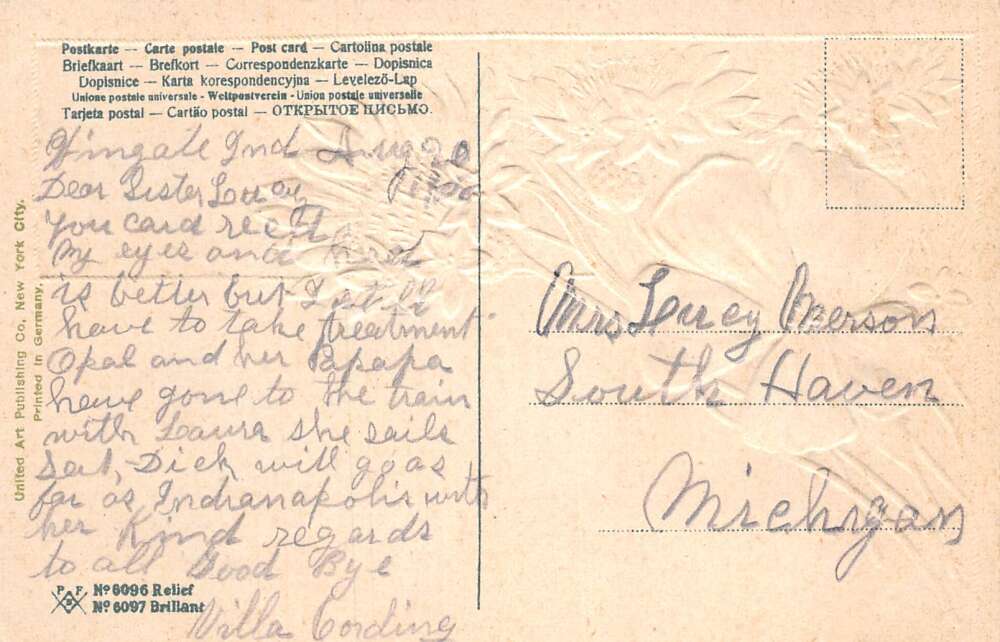 Postkarte — Carte postale — Post card — Cartolina postale
Briefkaart — Brefkort — Correspondenzkarte — Dopisnica
Dopisnice — Karta korespondencyjna — Levelező-Lap
Unione postale universale - Weltpostverein - Union postale universelle
Tarjeta postal — Cartão postal — ОТКРЫТОЕ ПИСЬМО.
Wingate Ind Aug
Dear Sister Lucy
You card rec'd
My eyes and
is better but I still
have to take treatment
Opal and her Papapa
have gone to the train
with Laura she sails
Sat, Dick will go as
far as Indianapolis with
her Kind regards
to all Good Bye
Willa Cording
Mrs Lucy
South Haven
Michigan
United Art Publishing Co., New York City.
Printed in Germany,
P F B
Nº 6096 Relief
Nº 6097 Brillant